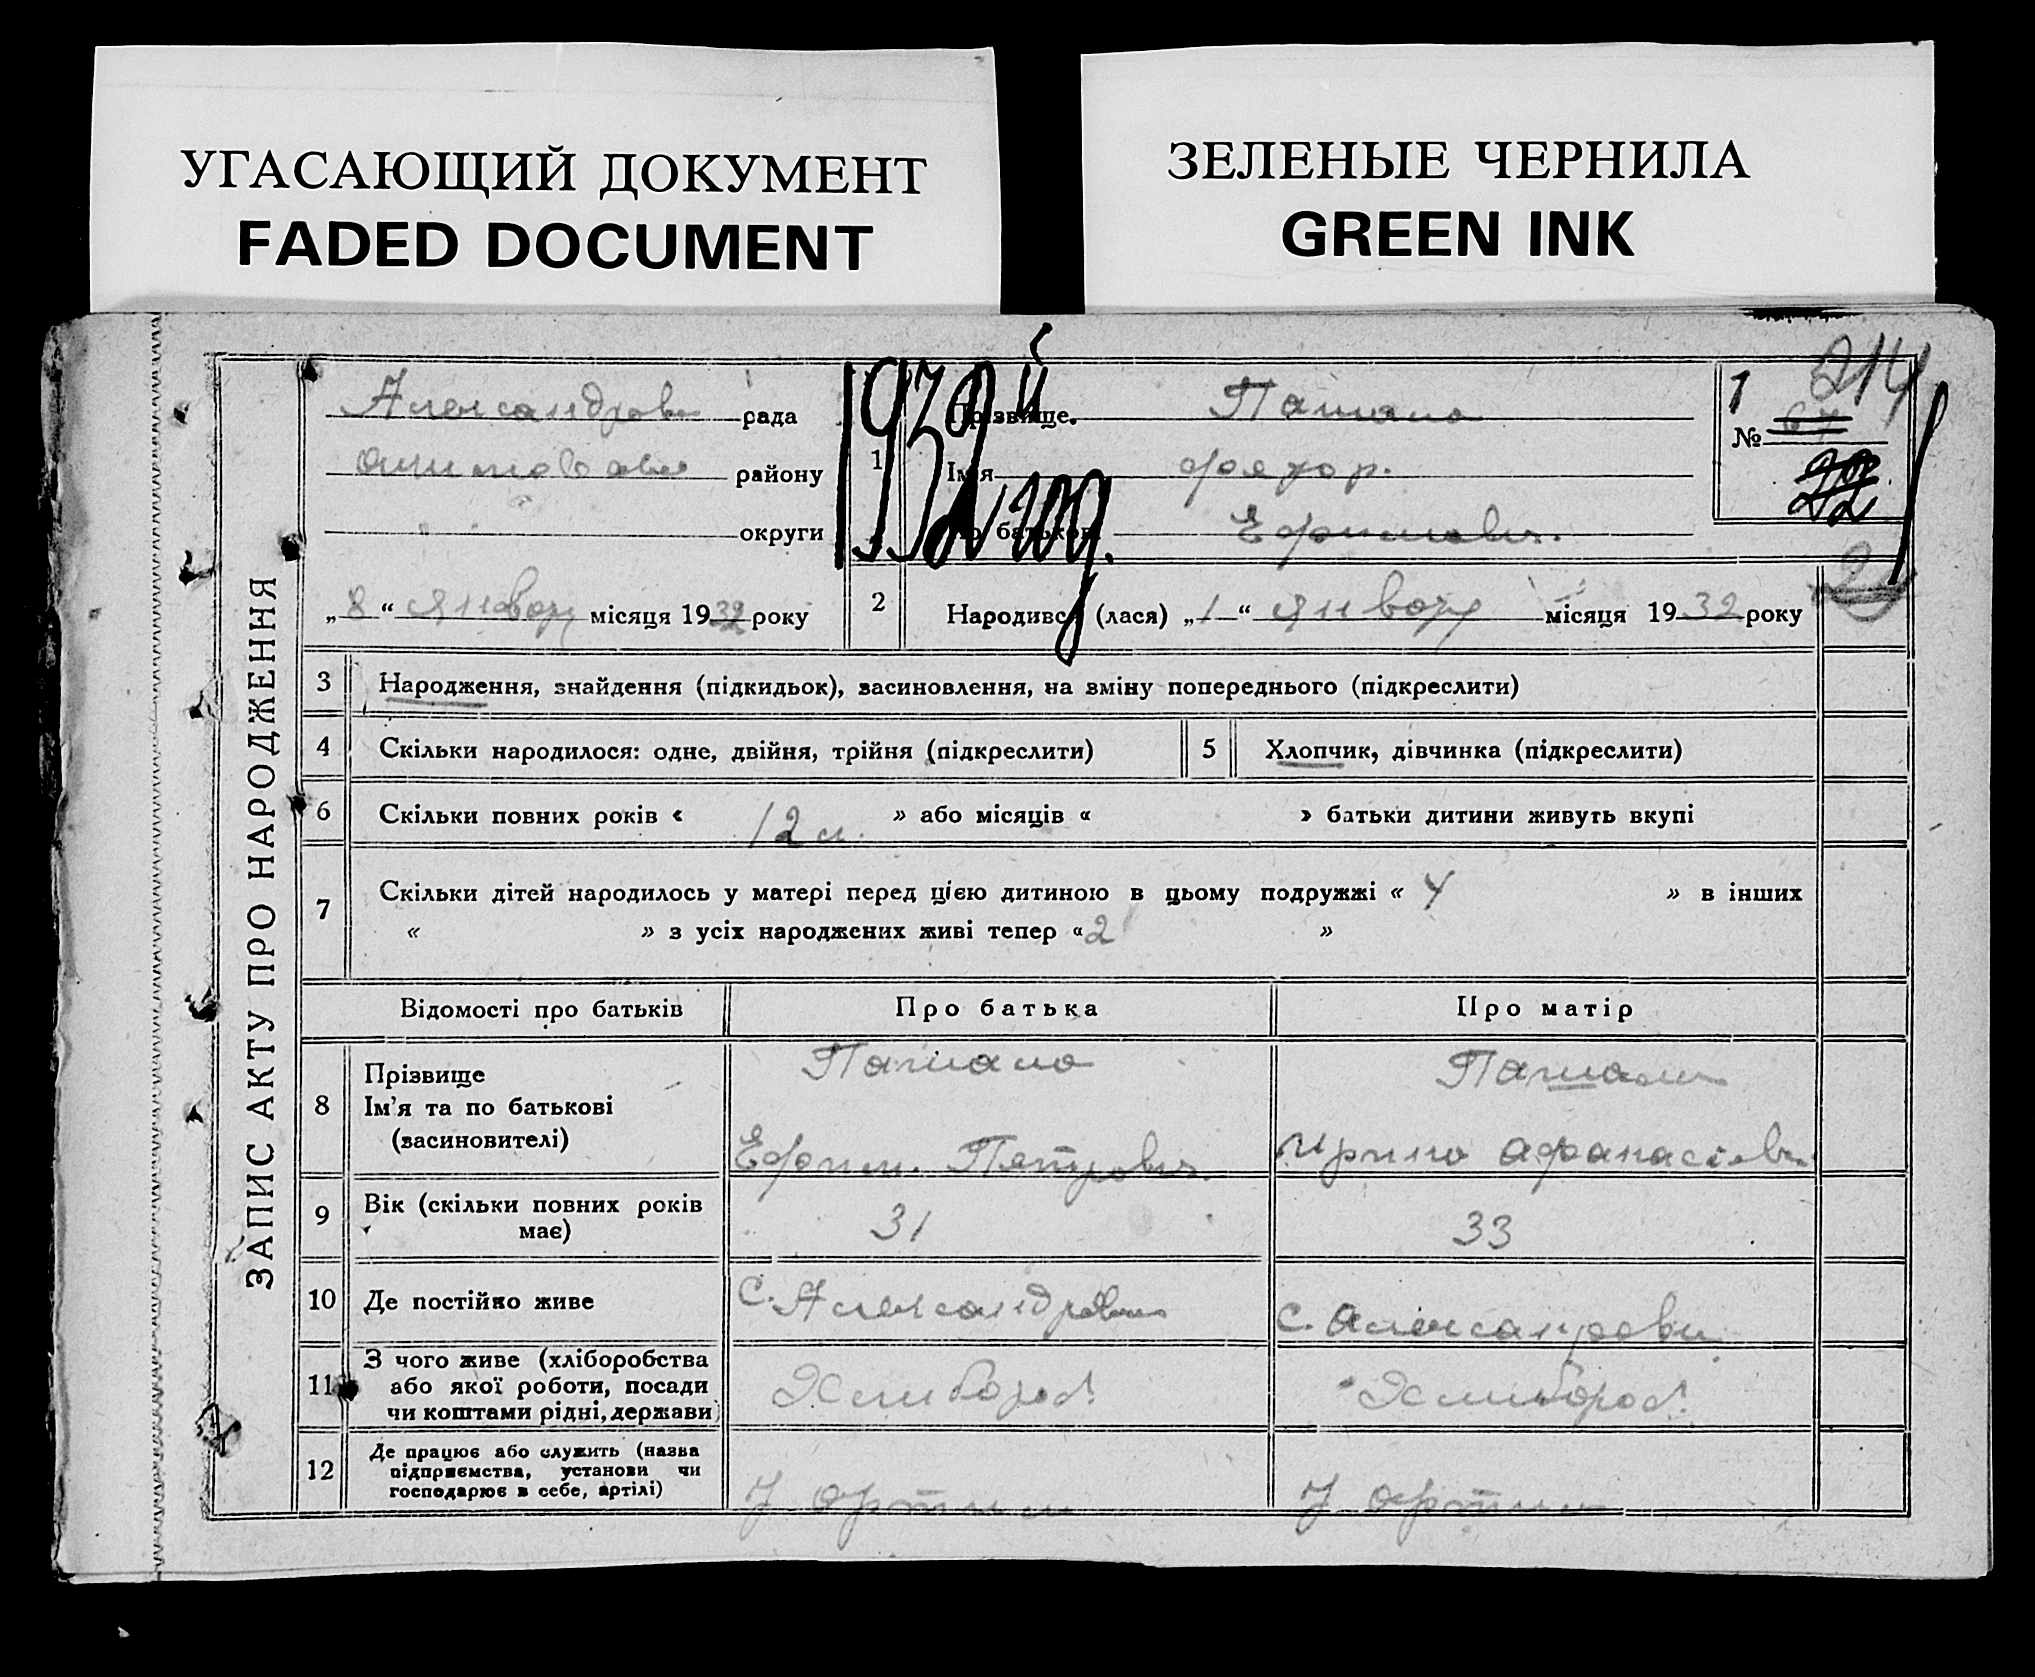 УГАСАЮЩИЙ ДОКУМЕНТ
FADED DOCUMENT
ЗЕЛЕНЫЕ ЧЕРНИЛА
GREEN INK
ЗАПИС АКТУ ПРО НАРОДЖЕННЯ
рада
району
округи
„8“ января місяця 1932 року
1932й год.
1 Прізвище.
Ім'я
По батькові Ефимович.
1 214
№ 67
22
2
2 Народився (лася) „1“ января місяця 1932 року
3 Народження, знайдення (підкидьок), засиновлення, на зміну попереднього (підкреслити)
4 Скільки народилося: одне, двійня, трійня (підкреслити) 5 Хлопчик, дівчинка (підкреслити)
6 Скільки повних років « 12 л. » або місяців « » батьки дитини живуть вкупі
7 Скільки дітей народилось у матері перед цією дитиною в цьому подружжі « 4 » в інших
« » з усіх народжених живі тепер «2 »
Відомості про батьків Про батька Про матір
8 Прізвище
Ім'я та по батькові
(засиновителі)
Ефим. Петрович.
9 Вік (скільки повних років має) 31 33
10 Де постійно живе с. с.
11 З чого живе (хліборобства
або якої роботи, посади
чи коштами рідні, держави) Хлибороб. Хлибороб.
12 Де працює або служить (назва
підприємства, установи чи
господарює в себе, артілі)
У артили У артили